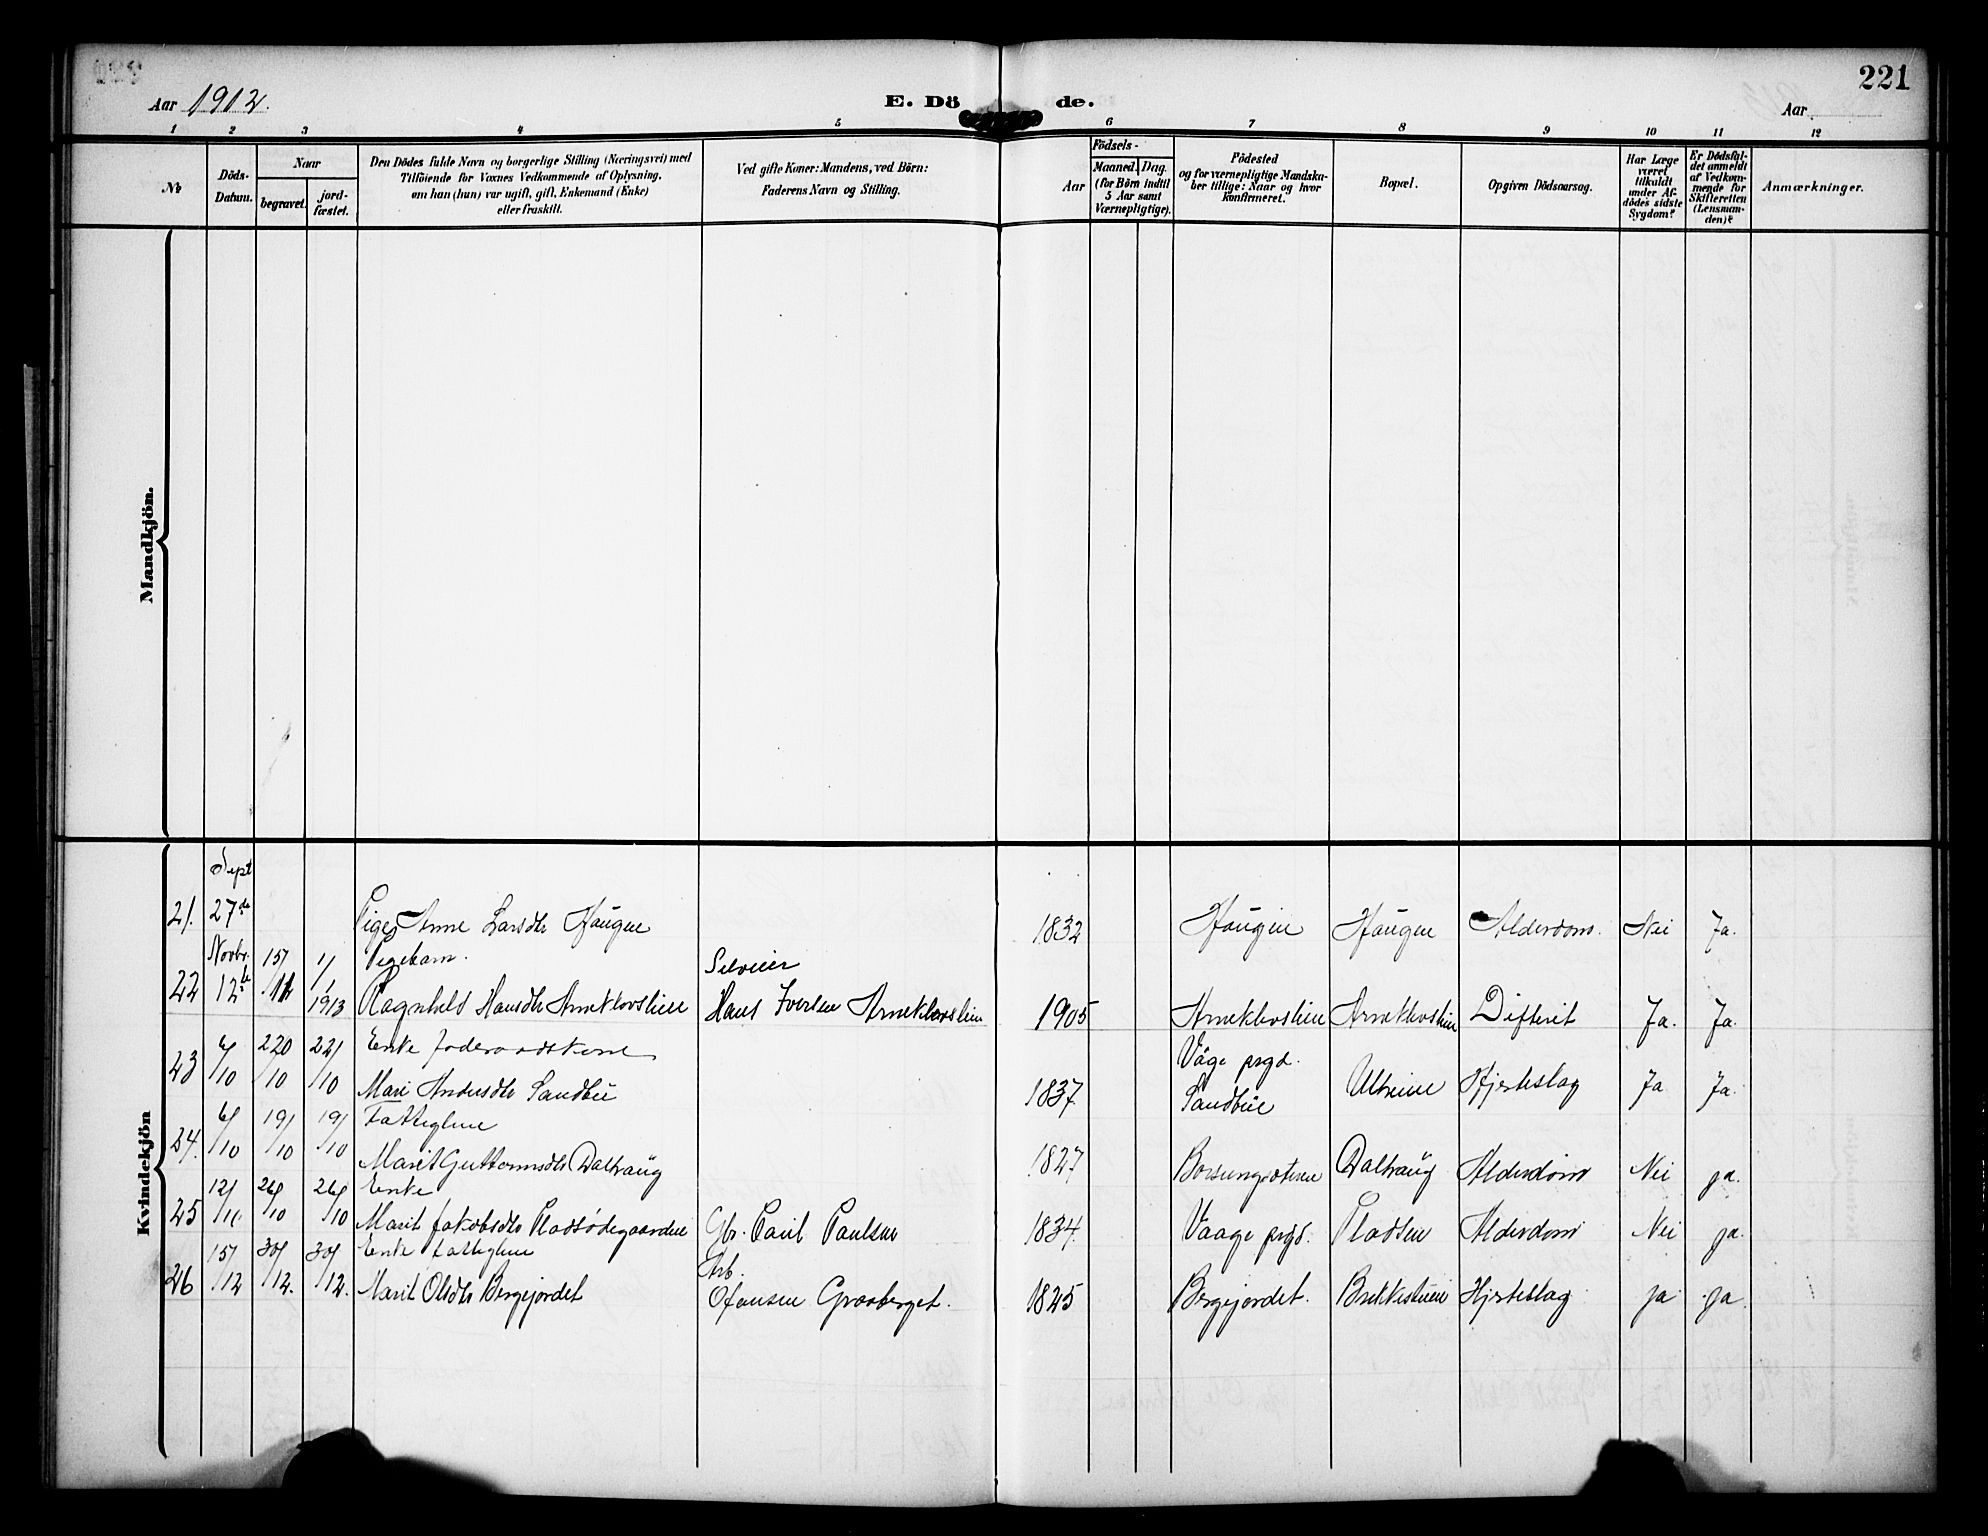 221
Aar 1912.
E. Dö de.
Aar
1 2 3 4 5 6 7 8 9 10 11 12
No
Döds-Datum.
Naar
begravet.
jord-fæstet.
Den Dödes fulde Navn og borgerlige Stilling (Næringsvei) med
Tilföiende for Voxnes Vedkommende af Oplysning,
om han (hun) var ugift, gift, Enkemand (Enke)
eller fraskilt.
Ved gifte Koner: Mandens, ved Börn:
Faderens Navn og Stilling.
Födsels-
Aar
Maaned. Dag.
(for Börn indtil
5 Aar samt
Værnepligtige).
Födested
og for værnepligtige Mandska-
ber tillige: Naar og hvor
konfirmeret.
Bopæl.
Opgiven Dödsaarsag.
Har Læge
været
tilkaldt
under Af-
dödes sidste
Sygdom?
Er Dödsfal-
det anmeldt
af Vedkom-
mende for
Skifteretten
(Lensman-
den)?
Anmærkninger.
Mandkjön.
Kvindekjön
Sept
21. 27de Pige Anne Larsdtr Haugen 1832 Haugen Haugen Alderdom. Nei Ja.
Novbr. 15/ 1/ Pigebarn. Selveier
22 12te /12 /1913 Ragnhild Hansdtr Arneklovslien Hans Iversen Arneklovslien 1905 Arneklovslien Arneklovslien Difterit Ja. Ja.
6/ 22/ 22/ Enke Foderaadskone Våge prgd.
23 /10 /10 /10 Mari Andersdtr Sandbu 1837 Sandbue Ulheim Hjerteslag Ja Ja.
6/ 19/ 19/ Fattiglem
24. /10 /10 /10 Marit Guttormsdtr Dalhaug 1827 Dalhaug Alderdom Nei ja.
12/ 26/ 26/ Enke
25 /10 /10 Marit Jakobsdtr Pladsødegaarden Gbr. Paul Paulsen 1834 Vaage prgd. Pladsen Alderdom Nei ja.
15/ 30/ 30/ Enke Fattiglem Arb.
26 /12 /12. /12. Marit Olsdtr Bergejordet Graaberget. 1825 Bergejordet. Hjerteslag ja ja